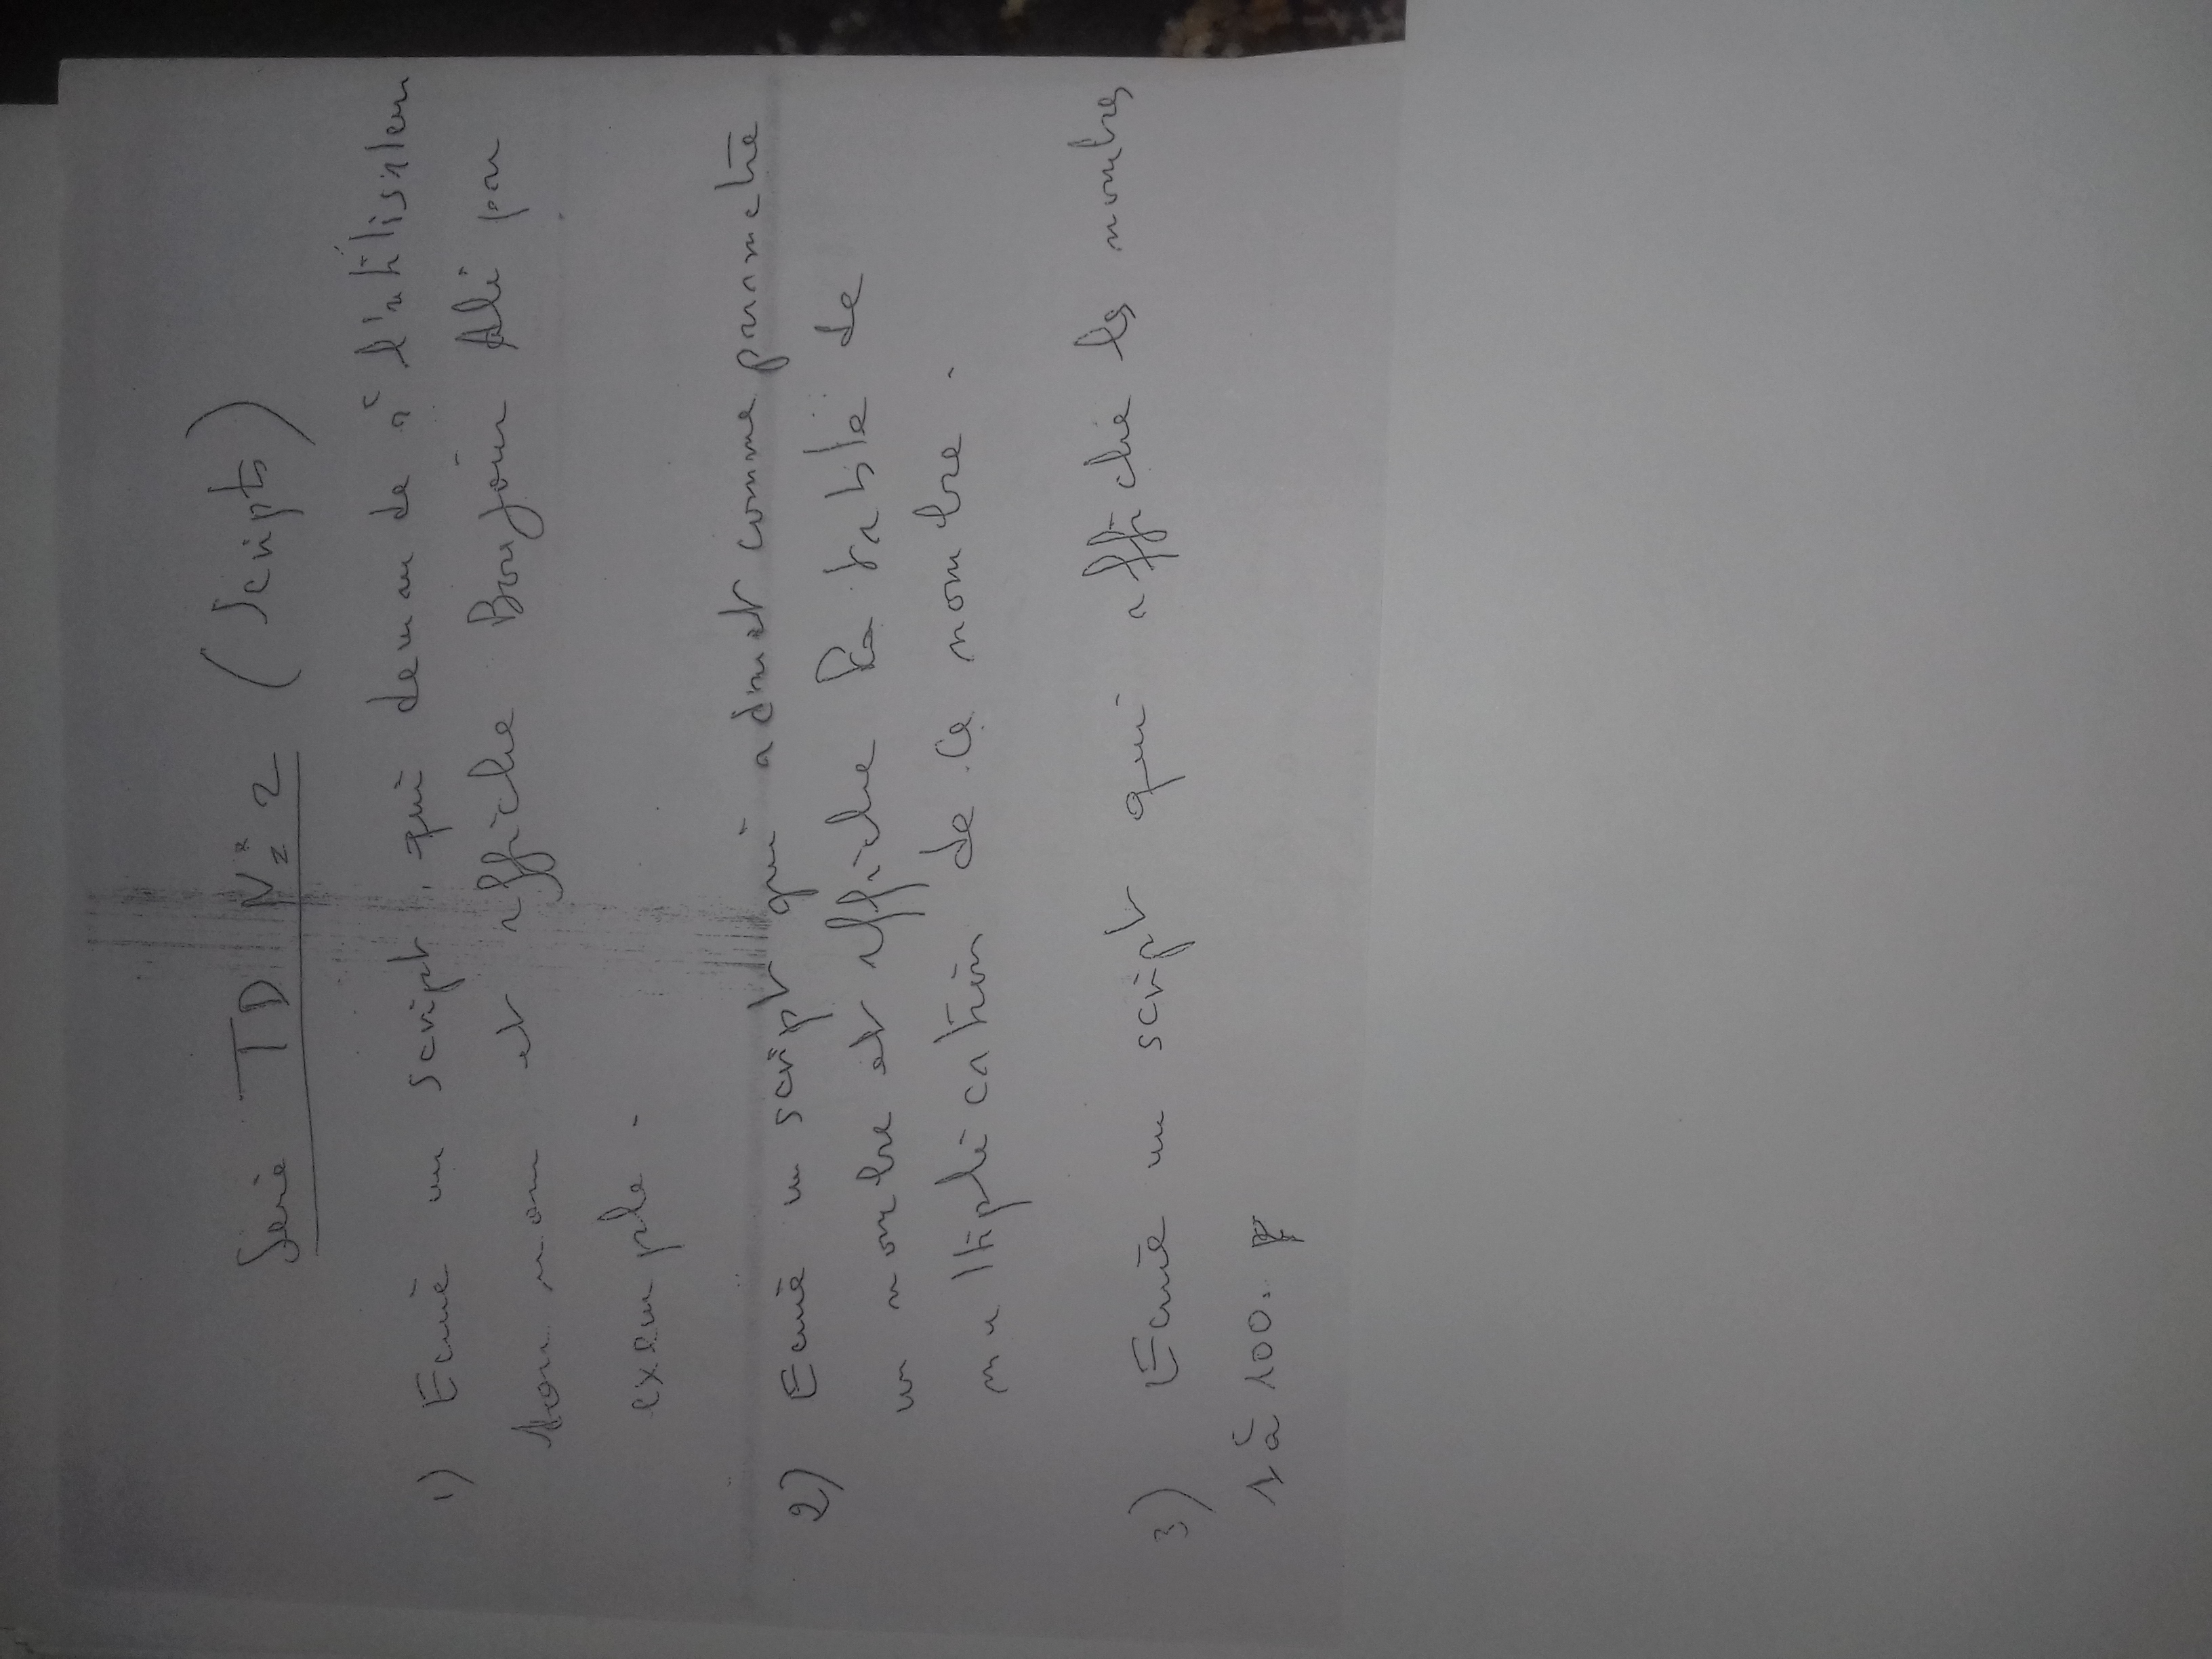 Serie TD N° 2 (Scripts)
1) Ecrire un script, qui demande à l'utilisateur
son nom et affiche Bonjour Ali par
exemple.
2) Ecrire un script qui admet comme parametre
un nombre et affiche la table de
multiplication de ce nombre.
3) Ecrire un script qui affiche les nombres
1 à 100.